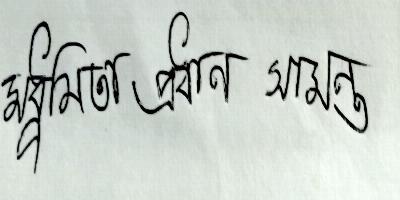 মধুমিতা প্রধান সামন্ত